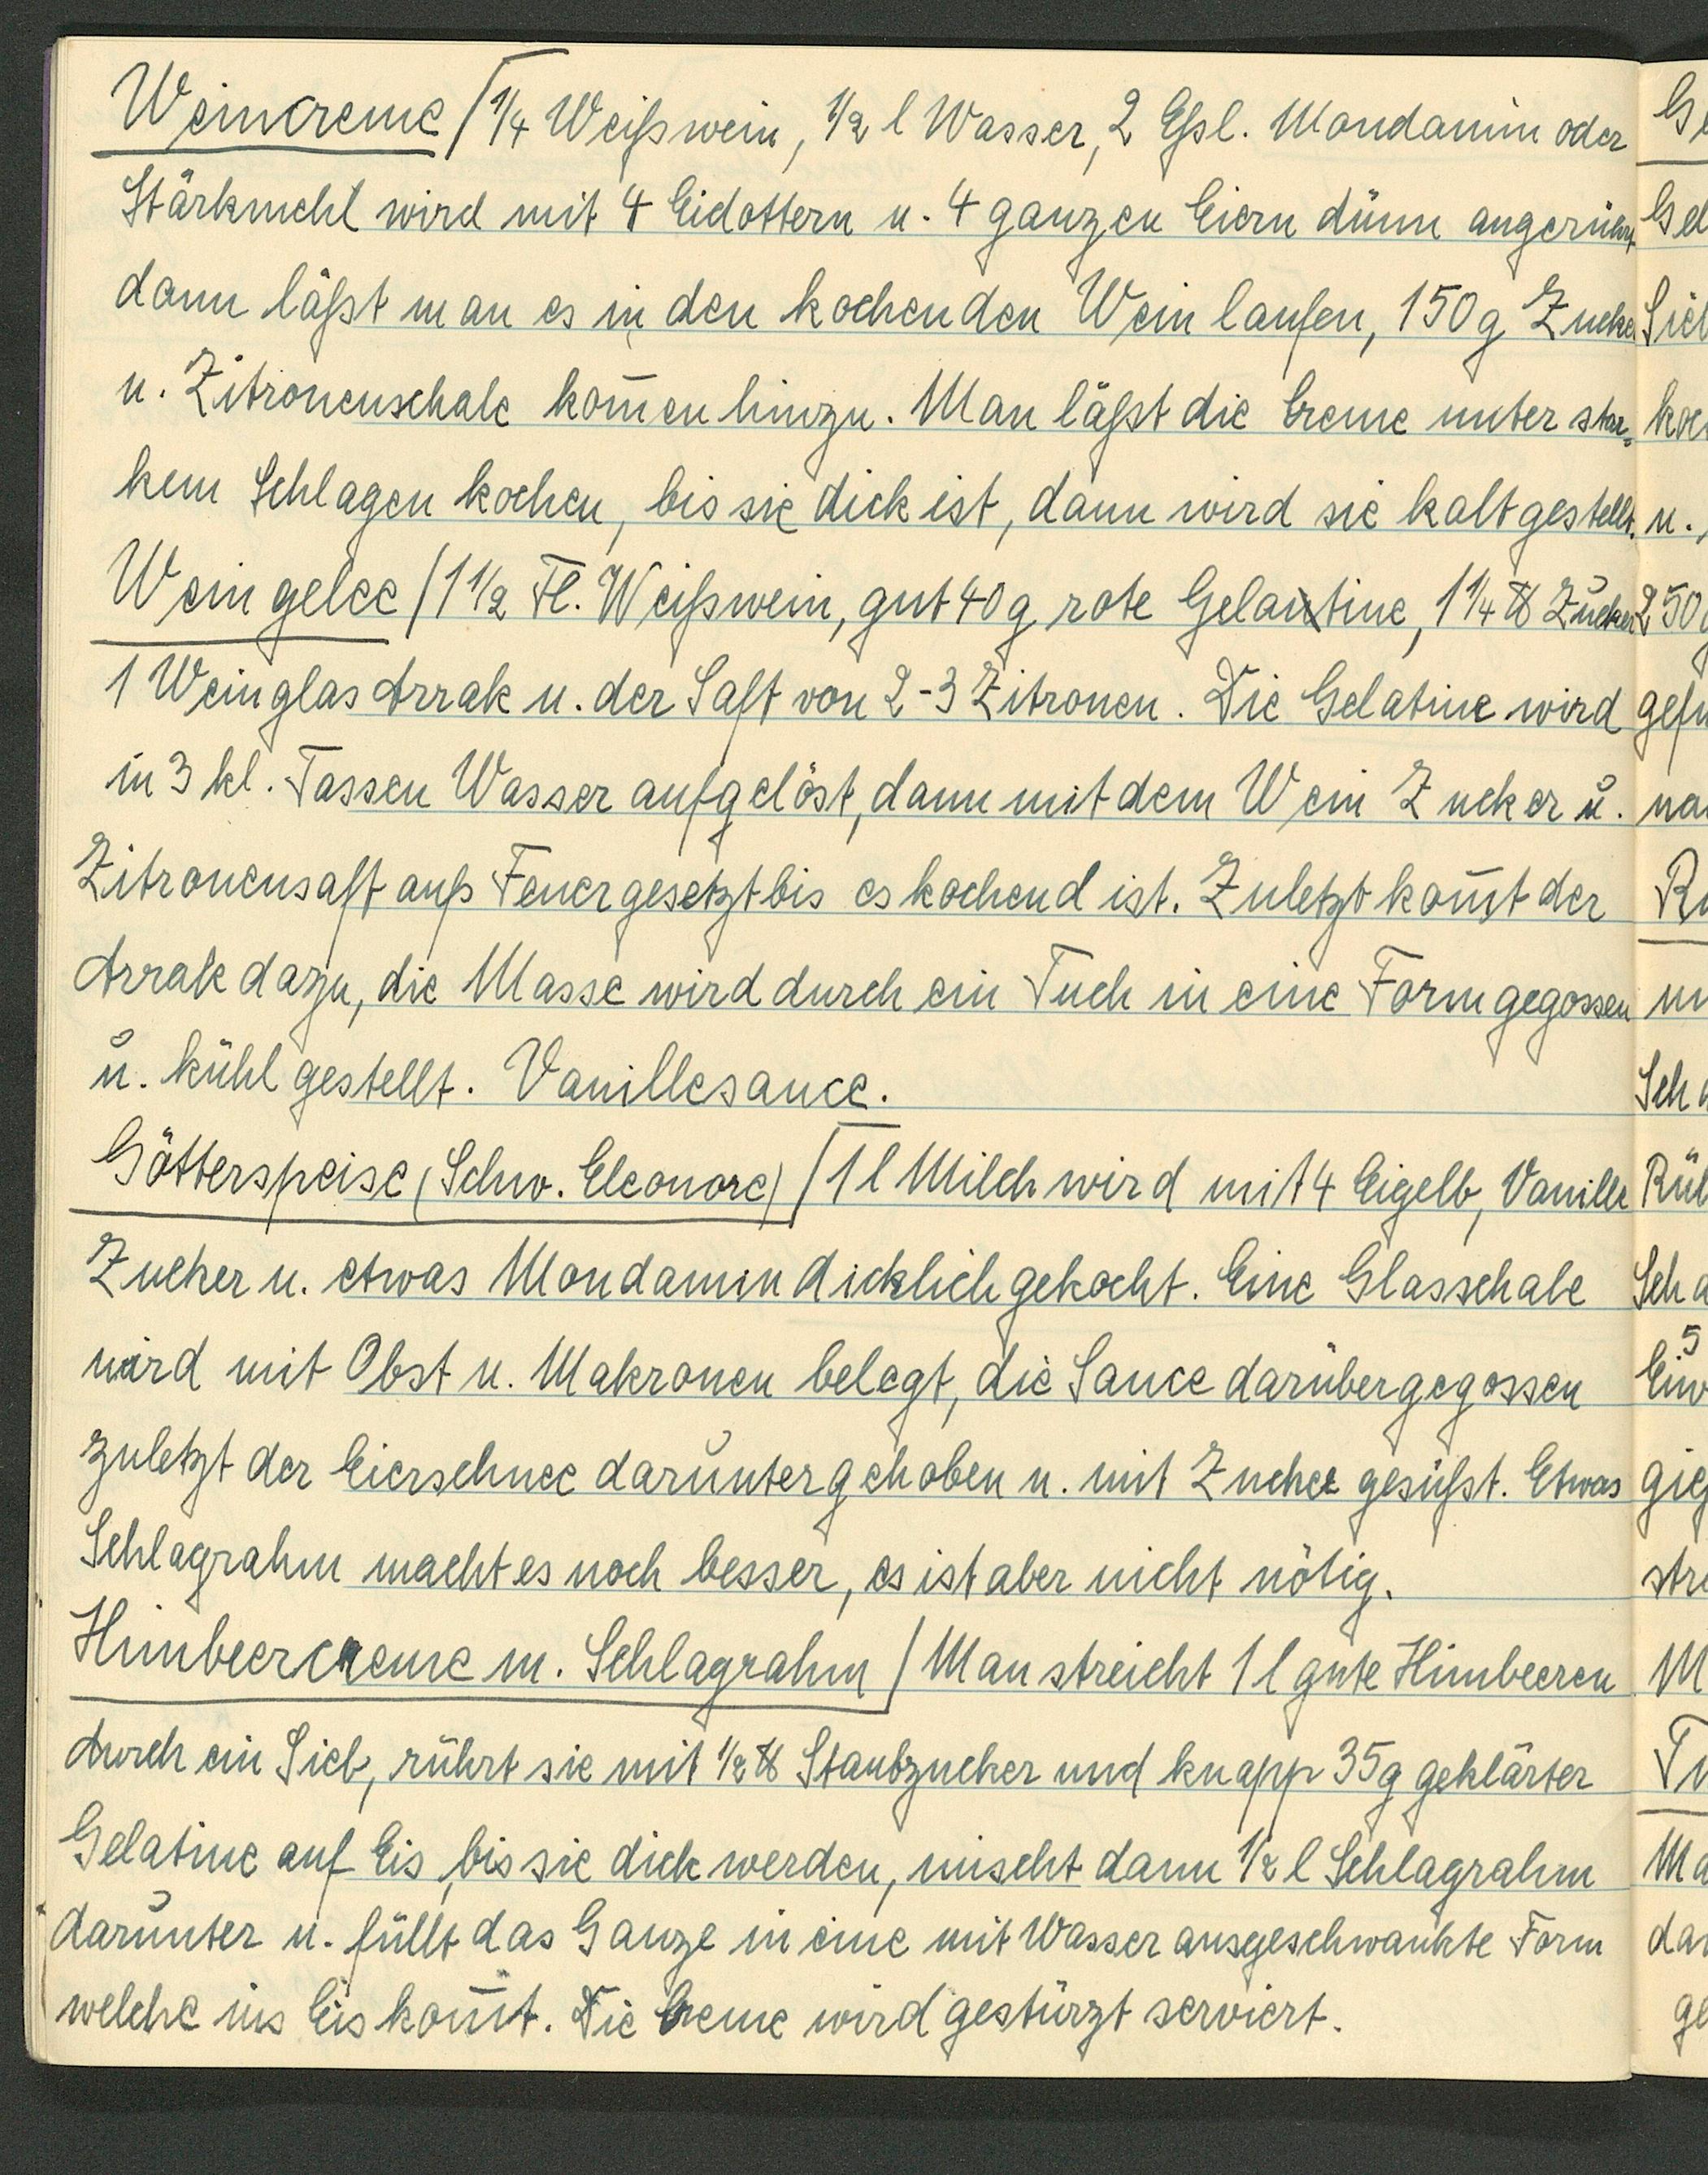 Weincreme / 1/4 Weißwein, 1/2 l Wasser, 2 Eßl. Mondamin oder
Stärkmehl wird mit 4 Eidottern u. 4 ganzen Eiern dünn angerührt
dann läßt man es in den kochenden Wein laufen, 150 g Zucker
u. Zitronenschale kom̄en hinzu. Man läßt die Creme unter star=
kem Schlagen kochen, bis sie dick ist, dann wird sie kalt gestellt.
Weingelee / 1 1/2 Fl. Weißwein, gut 40 g rote Gelatine, 1 1/4 ℔ Zucker
1 Weinglas Arrak u. der Saft von 2-3 Zitronen. Die Gelatine wird
in 3 kl. Tassen Wasser aufgelöst, dann mit dem Wein Zucker u.
Zitronensaft aufs Feuer gesetzt bis es kochend ist. Zuletzt kom̄t der
Arrak dazu, die Masse wird durch ein Tuch in eine Form gegossen
u. kühl gestellt. Vanillesauce.
Götterspeise (Schw. Eleonore) / 1 l Milch wird mit 4 Eigelb, Vanille
Zucker u. etwas Mondamin dicklich gekocht. Eine Glasschale
wird mit Obst u. Makronen belegt, die Sauce darübergegossen
zuletzt der Eierschnee daruntergehoben u. mit Zucker gesüßt. Etwas
Schlagrahm macht es noch besser, es ist aber nicht nötig.
Himbeercreme m. Schlagrahm / Man streicht 1 l gute Himbeeren
durch ein Sieb, rührt sie mit 1/2 ℔ Staubzucker und knapp 35 g geklärter
Gelatine auf Eis, bis sie dick werden, mischt dann 1/2 l Schlagrahm
darunter u. füllt das Ganze in eine mit Wasser ausgeschwankte Form
welche ins Eis kom̄t. Die Creme wird gestürzt serviert.